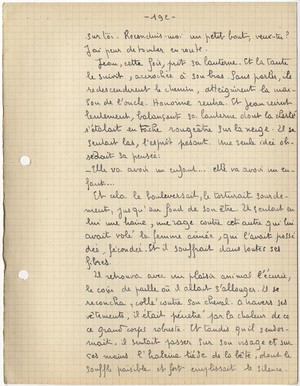 - 192 -
sur toi. Reconduis-moi un petit bout, veux-tu?
J'ai peur de tomber en route.
Jean, cette fois, prit sa lanterne. Et la tante
le suivit, accrochée à son bras. Sans parler, ils
redescendirent le chemin, atteignirent la mai-
son de l'oncle. Honorine rentra. Et Jean revint
lentement, balançant sa lanterne dont la clarté
s'étalait en tache rougeâtre sur la neige. Il se
sentait las, l'esprit pesant. Une seule idée ob-
sédait sa pensée:
- Elle va avoir un enfant... elle va avoir un en-
fant...
Et cela le bouleversait, le torturait sourde-
ment, jusqu'au fond de son être. Il sentait en
lui une haine, une rage contre cet autre qui lui
avait volé la femme aimée, qui l'avait possé
dée, fécondée. Et il souffrait dans toutes ses
fibres.
Il retrouva avec un plaisir animal l'écurie,
le coin de paille où il allait s'allonger. Il se
recoucha, collé contre son cheval. A travers ses
vêtements, il était pénétré par la chaleur de ce
grand corps robuste. Et tandis qu'il s'endor-
mait, il sentait passer sur son visage et sur
ses mains l'haleine tiède de la bête, dont le
souffle paisible et fort emplissait le silence.